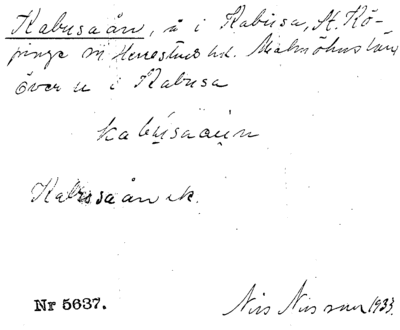 Kabusaån, å i Kabusa, St. Kö-
pinge sn Herrestads hd. Malmöhus län
över u i Kabusa
kabusaån
Kabusaån ek.
Nr 5637.
Nils Nilsson 1933.